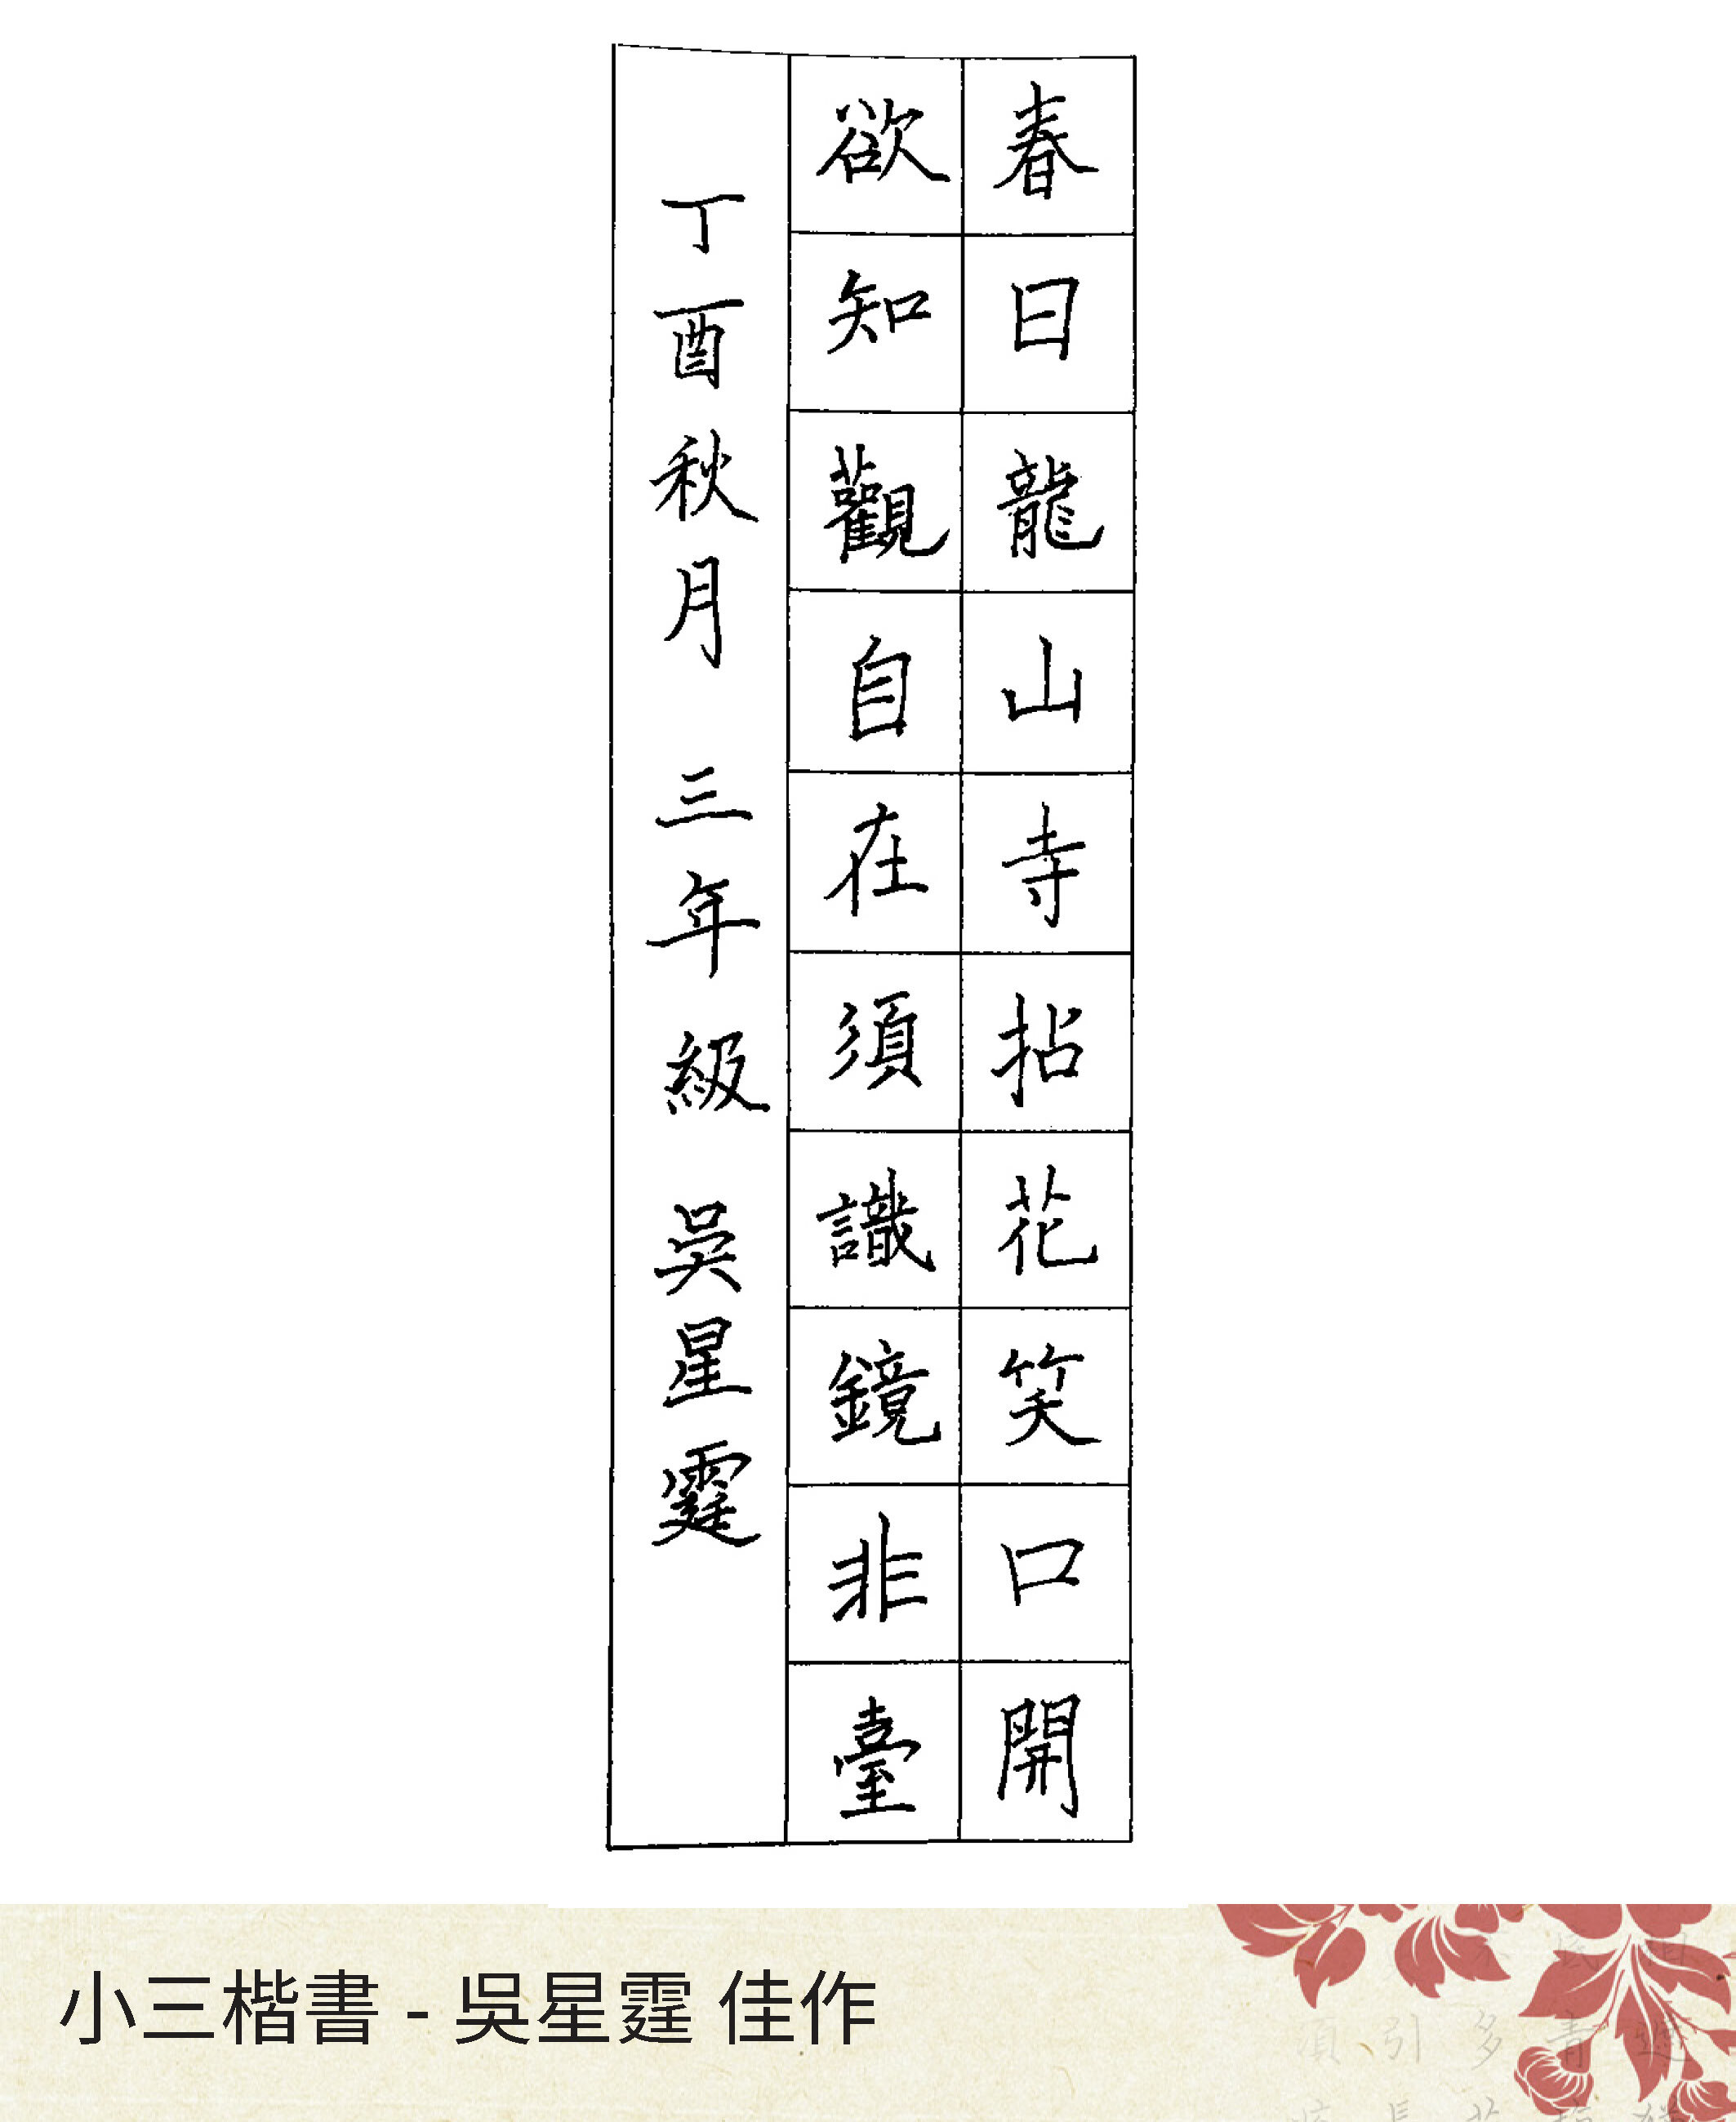 春日龍山寺拈花笑口開
欲知觀自在須識鏡非臺
丁酉秋月 三年級 吳星霆
小三楷書 - 吳星霆 佳作